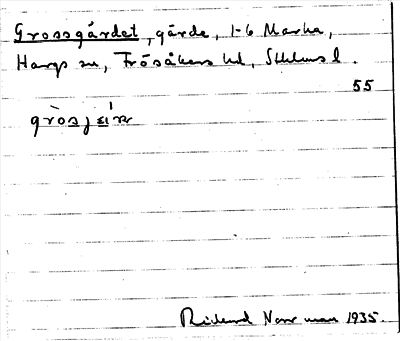 Grossgärdet, gärde, 1-6 Marka,
Hargs sn, Frösåkers hd, Sthlms l.
55
gròsjæ̀ɴ
Rickard Norrman 1935.